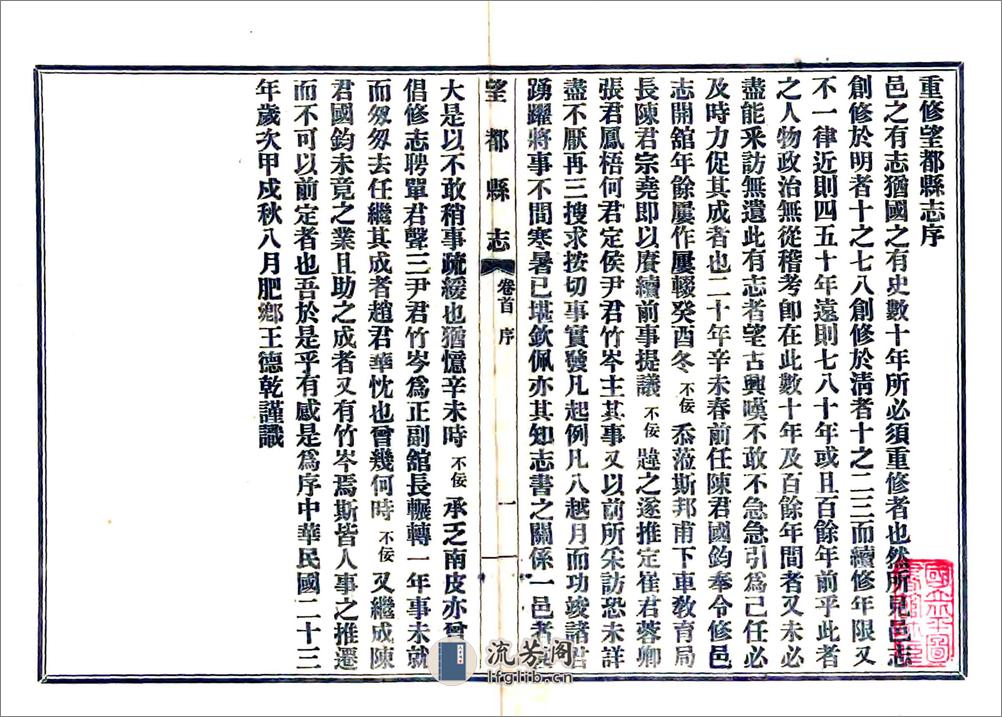 重修望都縣志序
邑之有志猶國之有史數十年所必須重修者也然所見邑志
創修於明者十之七八創修於清者十之二三而續修年限又
不一律近則四五十年遠則七八十年或且百餘年前乎此者
之人物政治無從稽考卽在此數十年及百餘年間者又未必
盡能采訪無遺此有志者望古興嘆不敢不急急引爲己任必
及時力促其成者也二十年辛未春前任陳君國鈞奉令修邑
志開舘年餘屢作屢輟癸酉冬不佞忝蒞斯邦甫下車敎育局
長陳君宗堯卽以賡續前事提議不佞韙之遂推定崔君蓉卿
張君鳳梧何君定侯尹君竹岑主其事又以前所采訪恐未詳
盡不厭再三搜求按切事實發凡起例凡八越月而功竣諸君
踴躍將事不間寒暑已堪欽佩亦其知志書之關係一邑者
望都縣志 卷首 序 一
大是以不敢稍事疏緩也猶憶辛未時不佞承乏南皮亦曾
倡修志聘單君聲三尹君竹岑爲正副舘長輾轉一年事未就
而匆匆去任繼其成者趙君華忱也曾幾何時不佞又繼成陳
君國鈞未竟之業且助之成者又有竹岑焉斯皆人事之推遷
而不可以前定者也吾於是乎有感是爲序中華民國二十三
年歲次甲戌秋八月肥鄕王德乾謹識
流芳閣
lfglib.cn